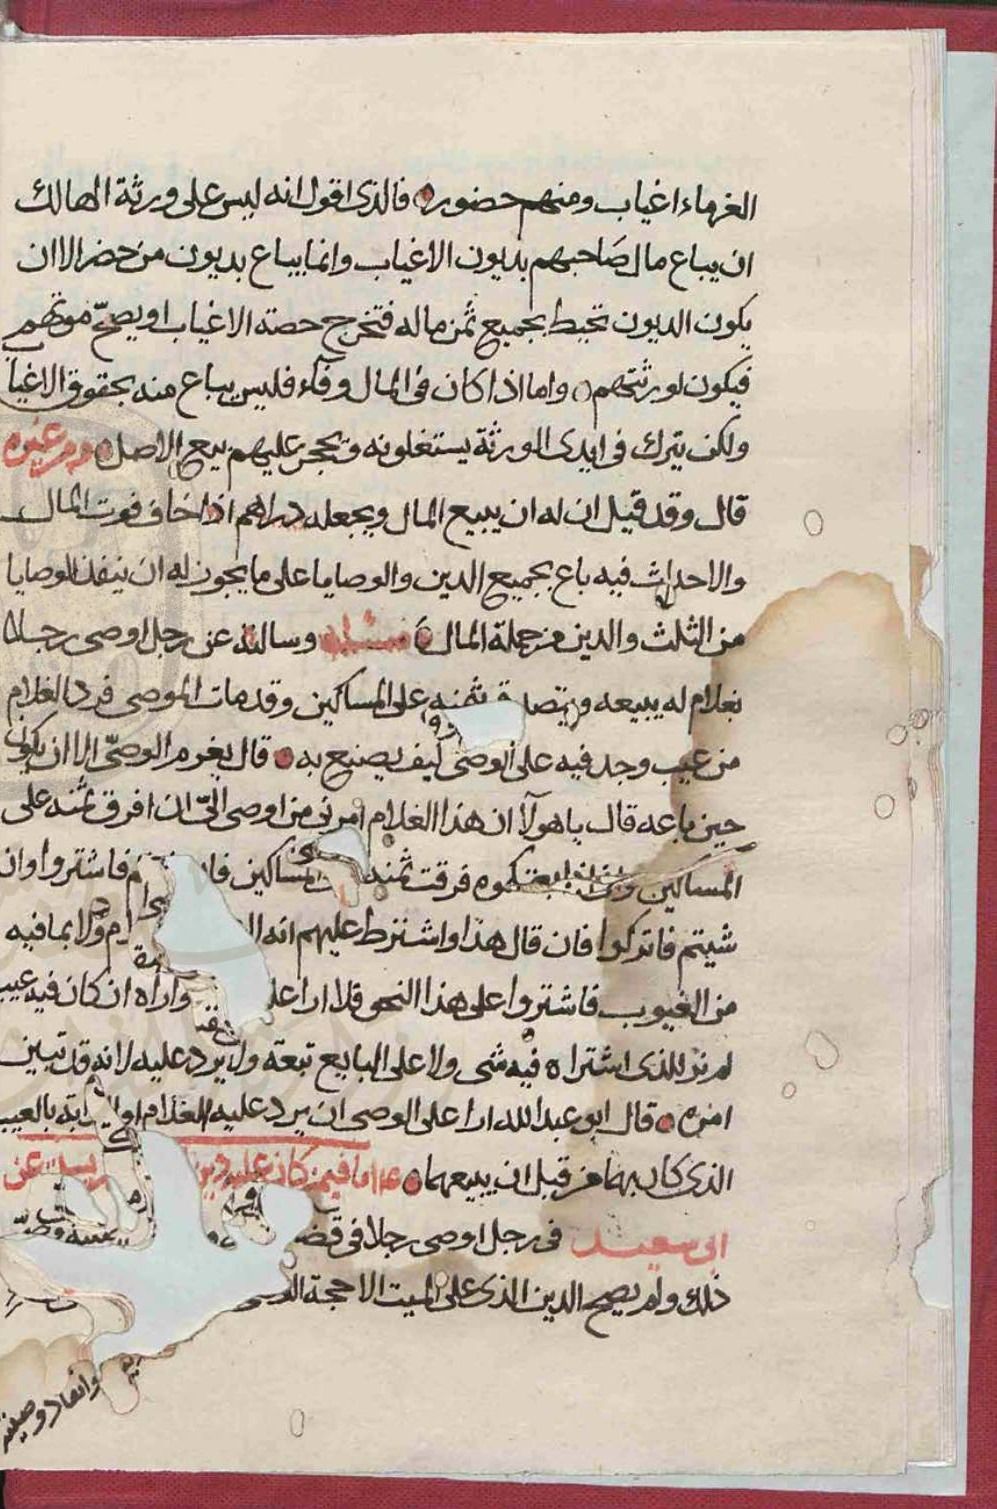 الغرماء اغياب ومنهم حضور فالذى اقول انه ليس على ورثة الهالك
ان يباع مال صَاحبهم بديون الاغياب وانما يباع بديون من حضر الا ان
يكون الديون تحيط بجميع ثمن ماله فتخرج حصته الاغياب او يصحّ موتهم
فيكون لورثتهم واما اذا كان فى المال وفآء فليس يباع منه بحقوق الاغيا
ولكن يترك فى ايدى الورثة يستغلونه وتحجر عليهم بيع الاصل ومن غيره
قال وقد قيل ان له ان يبيع المال ويجعله دراهم اذا خاف فوت المال
والاحداث فيه باع بجميع الدين والوصايا على ما يجوز له ان ينفذ الوصايا
من الثلث والدين من جملة المال مسئلة وسالته عن رجل اوصى رجلا
بغلام له يبيعه ويتصدق بثمنه على المساكين وقد مات الموصى فرد الغلام
من عيب وجد فيه على الوصى كيف يصنع به قال يغرم الوصىّ الا ان يكون
حين باعه قال ياهولآ ان هذا الغلام امرنى من اوصى الىّ ان افرق ثمنه على
المساكين فرقت ثمنه المساكين فان فاشتروا وان
شيتم فاتركوا فان قال هذا واشترط عليهم انه ولا بما فيه
من العيوب فاشتروا على هذا النحو فلا ارا على واراه ان كان فيه عيب
لم نر للذى اشتراه فيه شى ولا على البايع تبعة ولا يرد عليه لانه قد تبين
امره قال ابو عبدالله ارا على الوصى ان يرد عليه الغلام او الدابة بالعيب
الذى كان بهما من قبل ان يبيعهما فيمن كان عليه دين عن
ابى سعيد فى رجل اوصى رجلا فى
ذلك ولم يصح الدين الذى على الميت الا حجة